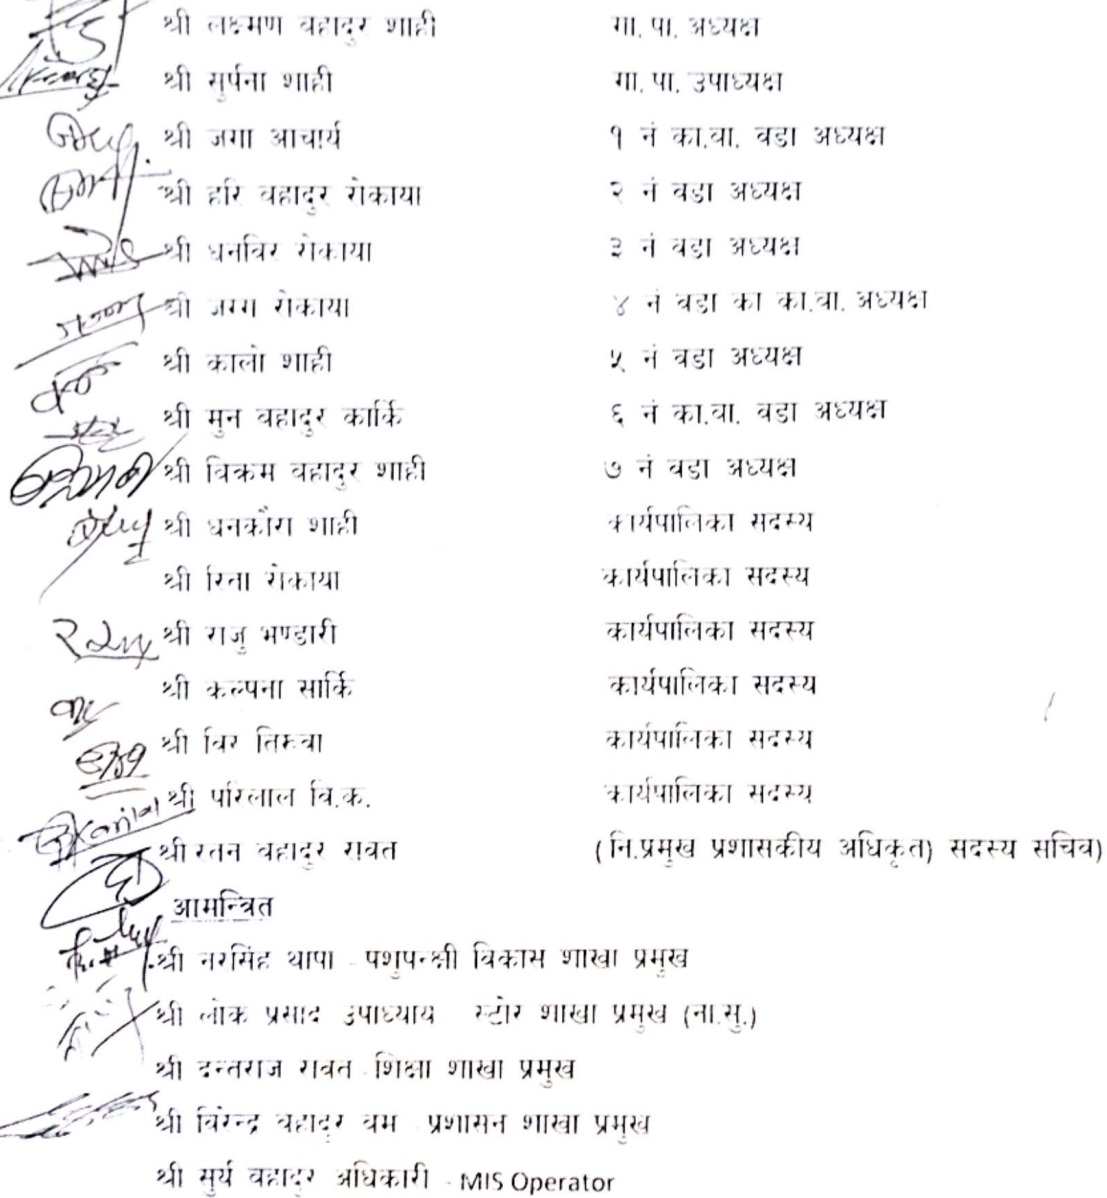 श्री लक्ष्मण बहादुर शाही गा. पा. अध्यक्ष
श्री सुर्पना शाही गा. पा. उपाध्यक्ष
श्री जगा आचार्य १ नं का.वा. वडा अध्यक्ष
श्री हरि बहादुर रोकाया २ नं वडा अध्यक्ष
श्री धनविर रोकाया ३ नं वडा अध्यक्ष
श्री जग्ग रोकाया ४ नं वडा का का.वा. अध्यक्ष
श्री कालो शाही ५ नं वडा अध्यक्ष
श्री मुन बहादुर कार्कि ६ नं का.वा. वडा अध्यक्ष
श्री विक्रम बहादुर शाही ७ नं वडा अध्यक्ष
श्री धनकौरा शाही कार्यपालिका सदस्य
श्री रिता रोकाया कार्यपालिका सदस्य
श्री राजु भण्डारी कार्यपालिका सदस्य
श्री कल्पना सार्कि कार्यपालिका सदस्य
श्री विर तिरुवा कार्यपालिका सदस्य
श्री परिलाल वि.क. कार्यपालिका सदस्य
श्री रतन बहादुर रावत (नि.प्रमुख प्रशासकीय अधिकृत) सदस्य सचिव)
आमन्त्रित
श्री नरसिंह थापा - पशुपन्क्षी विकास शाखा प्रमुख
श्री लोक प्रसाद उपाध्याय स्टोर शाखा प्रमुख (ना.सु.)
श्री दन्तराज रावत - शिक्षा शाखा प्रमुख
श्री विरेन्द्र बहादुर बम प्रशासन शाखा प्रमुख
श्री सुर्य बहादुर अधिकारी - MIS Operator